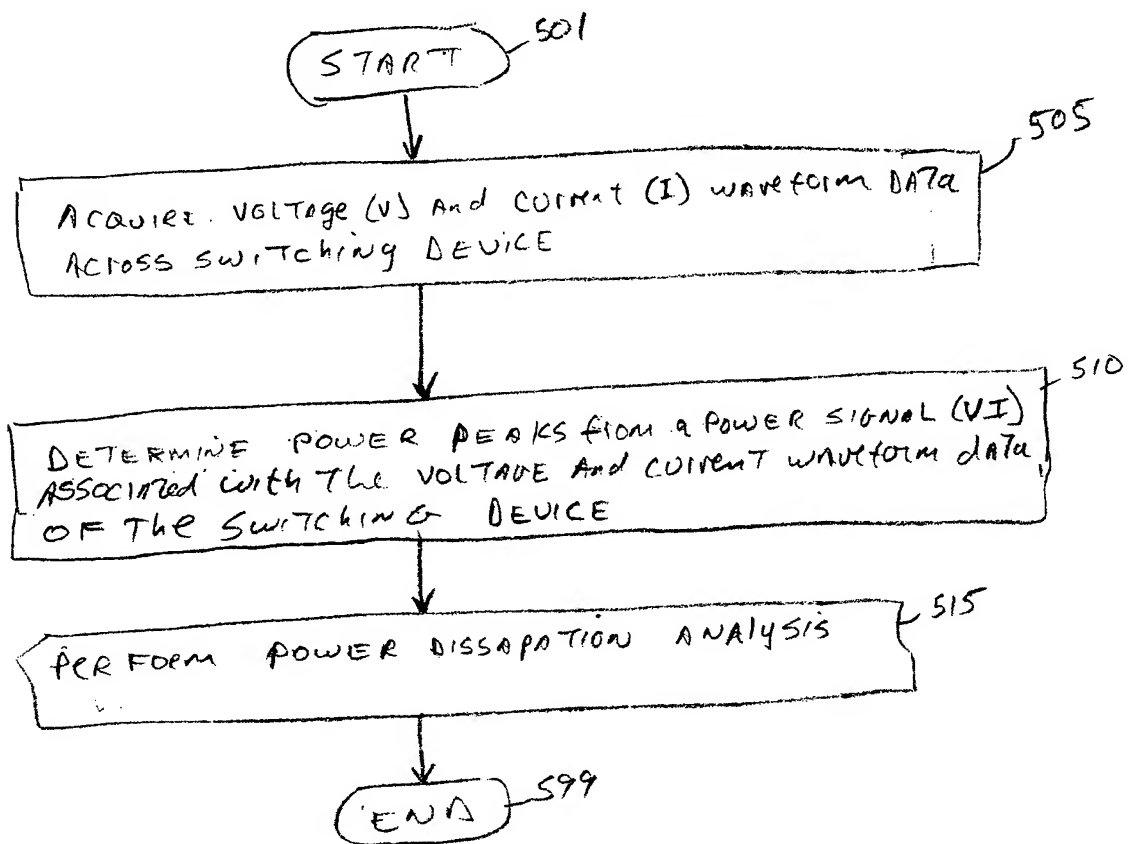 START
501
505
ACQUIRE VOLTAge (V) And CUrrent (I) waveform DATa
Across switching DEVICE
510
DETERMINE POWER PEAKS from a POWER SIGNAL (VI)
ASSOCIATed with The VOLTAGE And current waveform data
OF The SWITCHING DEVICE
515
PERFORM POWER DISSAPATION ANALYSIS
END
599